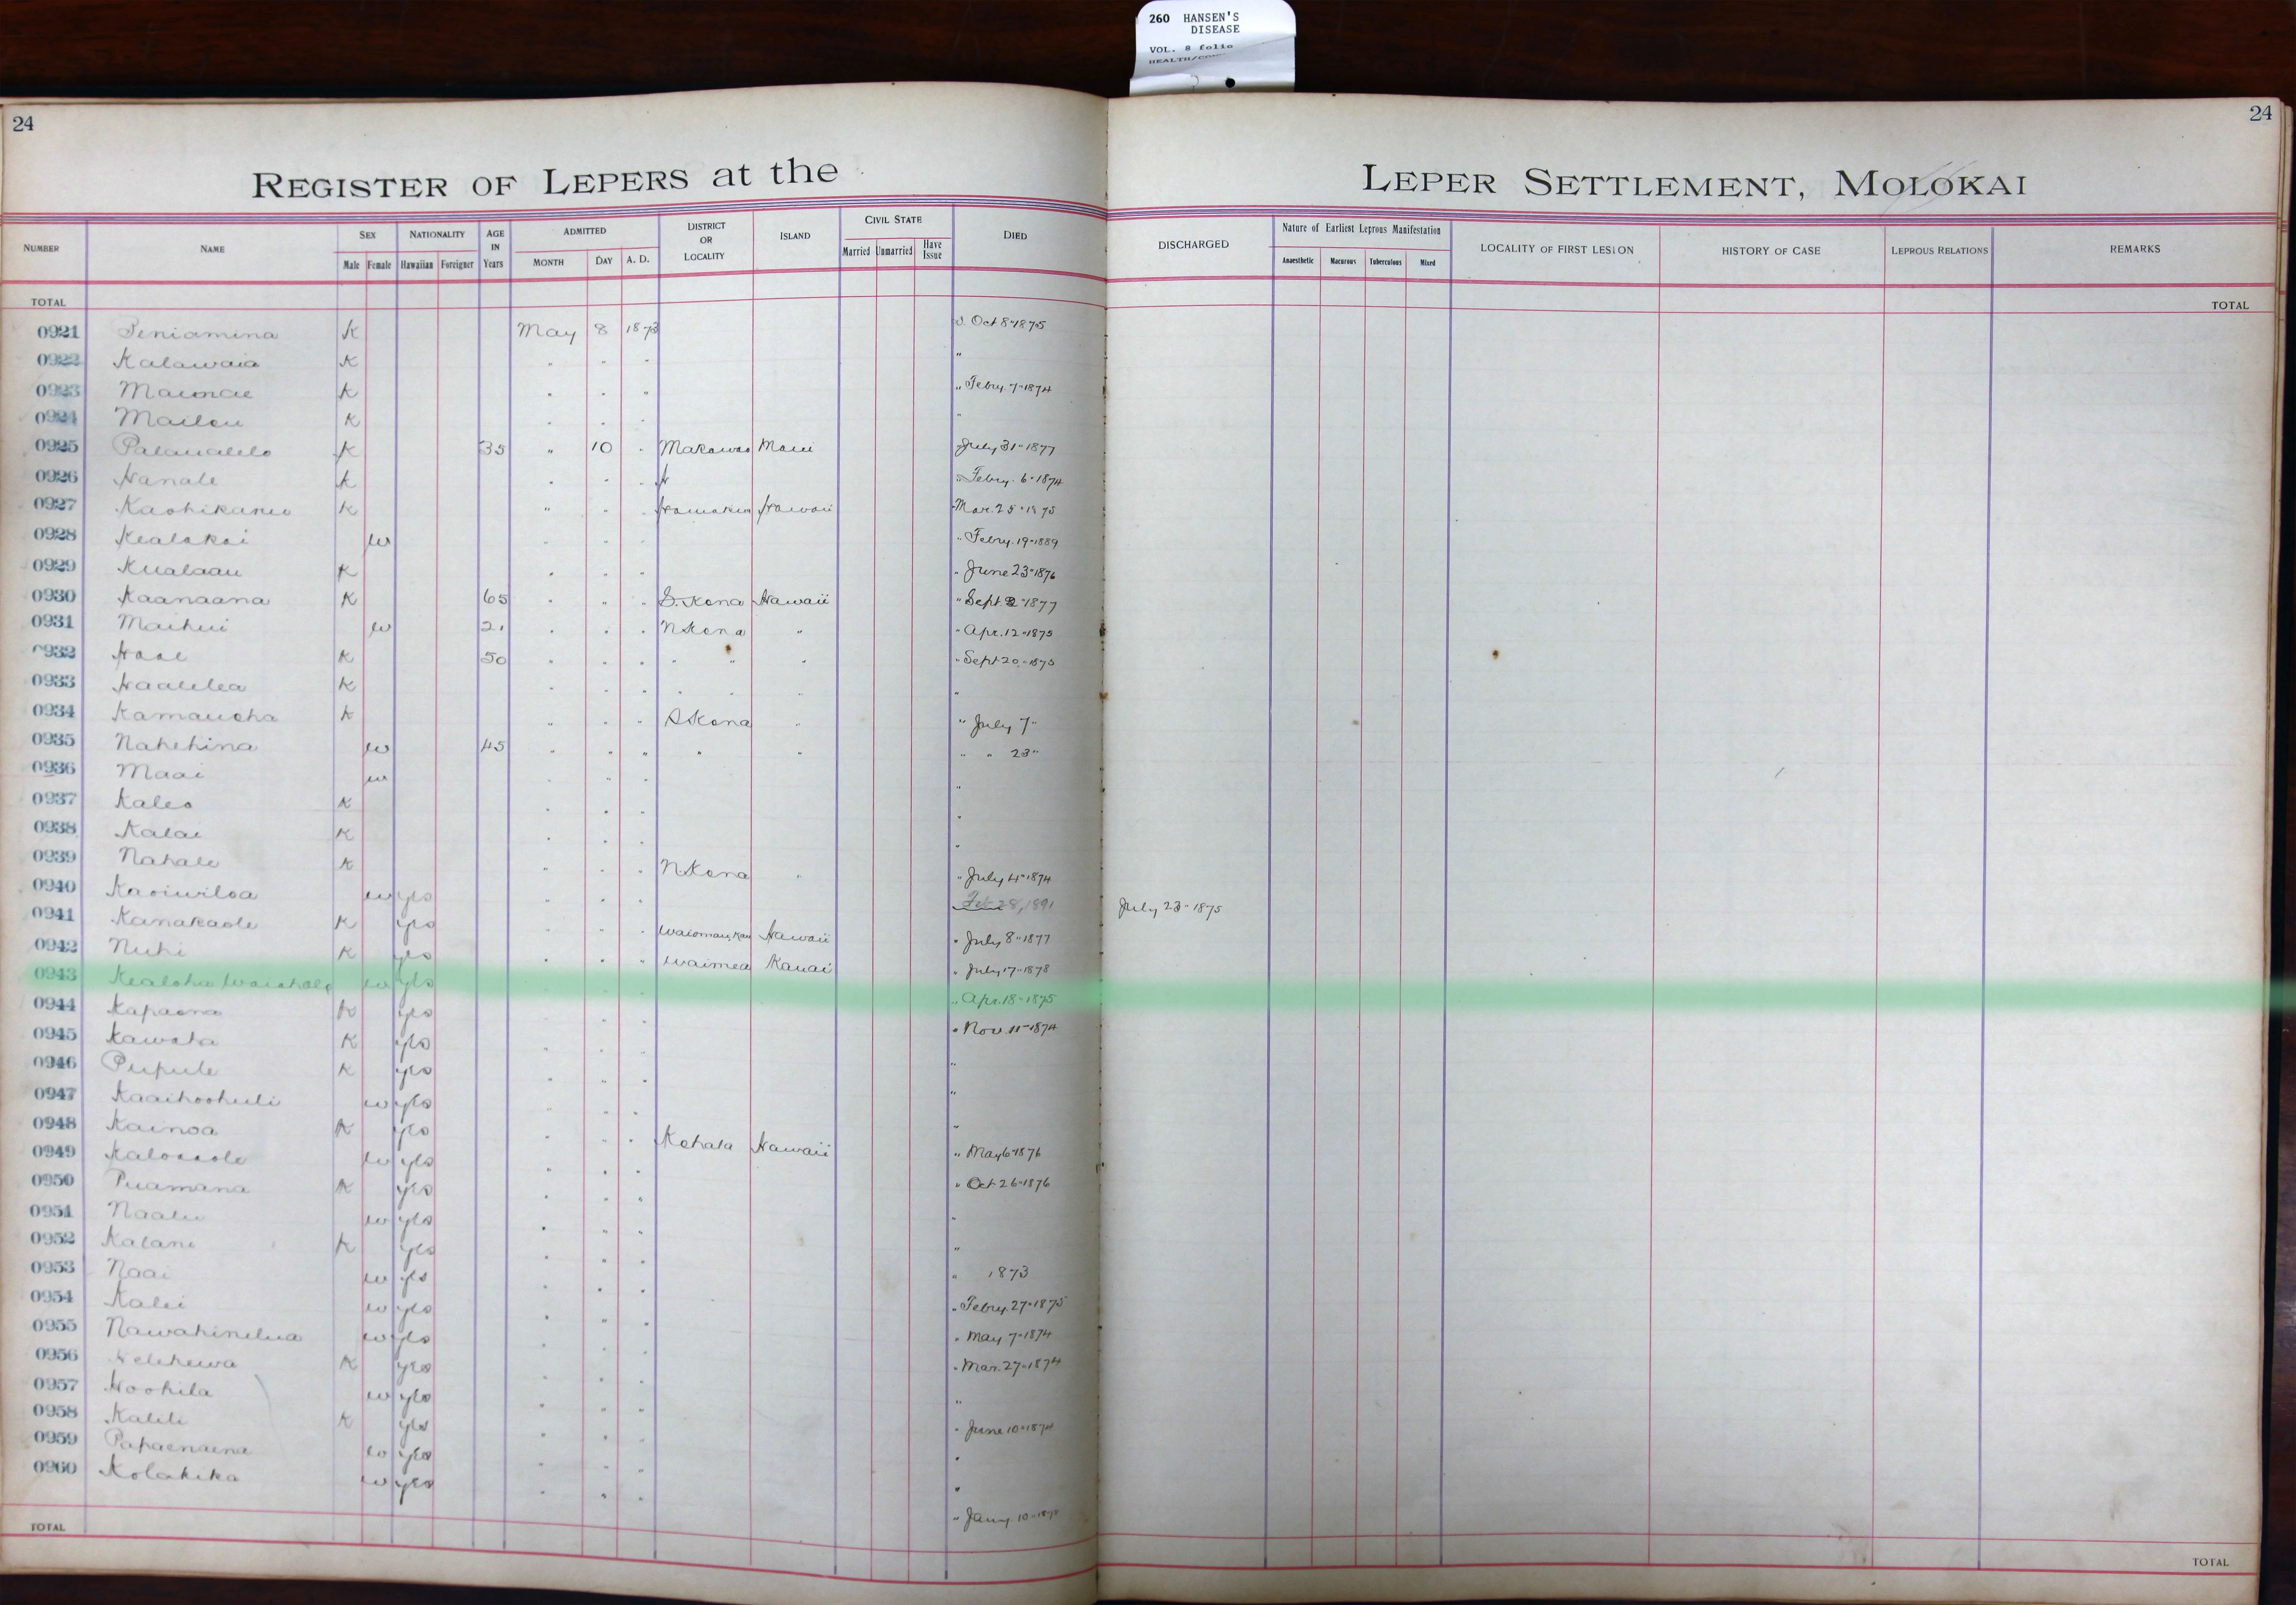 260 HANSEN'S
DISEASE
VOL. 8 folio
24
24
REGISTER OF LEPERS at the LEPER SETTLEMENT, MOLOKAI
NUMBER NAME SEX Male Female NATIONALITY Hawaiian Foreigner AGE IN Years ADMITTED MONTH DAY A. D. DISTRICT OR LOCALITY ISLAND CIVIL STATE Married Unmarried Have Issue DIED DISCHARGED Nature of Earliest Leprous Manifestation Anaesthetic Macurous Tuberculous Mixed LOCALITY OF FIRST LESION HISTORY OF CASE LEPROUS RELATIONS REMARKS
TOTAL TOTAL
0921 Peniamina K May 8 1873 Oct 8 " 1875
0922 Kalawaia K " " " "
0923 Maunae K " " " " Febry. 7 " 1874
0924 Mailou K " " " "
0925 Palaualelo K 35 " 10 " Makawao Maui July 31 " 1877
0926 Hanale K " " " " Febry. 6 " 1874
0927 K " " " Hamakua Hawaii Mar. 25 " 1875
0928 Kealakai w " " " " Febry. 19 " 1889
0929 Kualaau K " " " " June 23 " 1876
0930 Kaanaana K 65 " " " S. Kona Hawaii " Sept 2 " 1877
0931 Maihui w 21 " " " N Kona " " Apr. 12 " 1875
0932 Hoae K 50 " " " " " " " Sept 20 " 1875
0933 Haalilea K " " " " " " "
0934 Kamauoha K " " " S Kona " " July 7 "
0935 Nahehina w 45 " " " " " " " 23 "
0936 Maai w " " " "
0937 Kaleo K " " " "
0938 Kalai K " " " "
0939 Nahale K " " " N Kona " " July 4 " 1874
0940 Kaoiwiloa w yes " " " Feb 28, 1891 July 23 " 1875
0941 Kanakaole K yes " " " Waiomau, Kau Hawaii " July 8 " 1877
0942 Nuhi K yes " " " Waimea Kauai " July 17 " 1878
0943 Kealoha Waiahole w yes " " " " Apr. 18 " 1875
0944 Kapaona K yes " " " " Nov. 11 " 1874
0945 Kawaha K yes " " " "
0946 Pupule K yes " " " "
0947 Kaaihoohuli w yes " " " "
0948 Kainoa K yes " " " Kohala Hawaii " May 6 " 1876
0949 w yes " " " " Oct 26 " 1876
0950 Puamana K yes " " " "
0951 Naalu w yes " " " "
0952 Kalani K yes " " " " 1873
0953 Naai w yes " " " " Febry. 27 " 1875
0954 Kalei w yes " " " " May 7 " 1874
0955 Nawahinelua w yes " " " " Mar. 27 " 1874
0956 Kelehewa K yes " " " "
0957 Hoohila w yes " " " " June 10 " 1874
0958 Kalili K yes " " " "
0959 Papaenaena w yes " " " "
0960 Kolakika w yes " " " " Jany. 10 "
TOTAL TOTAL